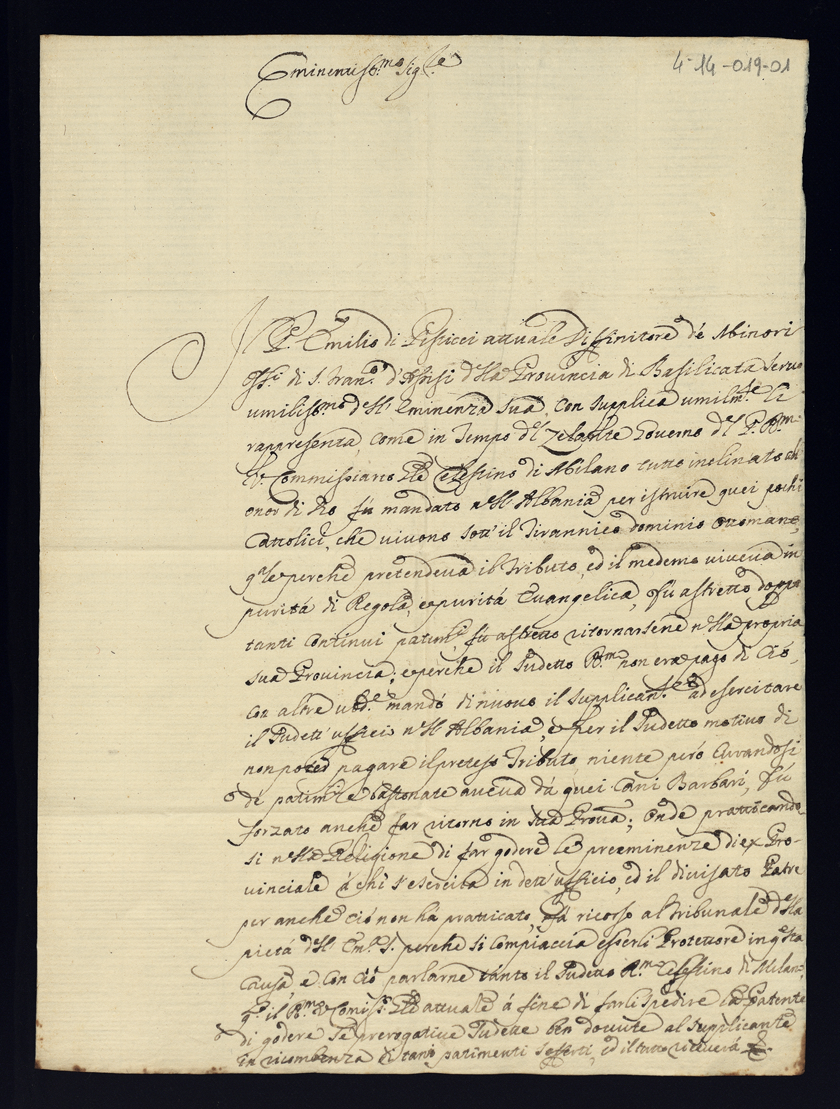 4-14-019-01
Eminentiss.mo Sig.re
Il P. Emilio di Pisticci attuale Diffinitore de Minori
Oss.ti di S. Fran.co d'Assisi d'lla Provincia di Basilicata servo
umiliss.mo d'll' Eminenza Sua, con supplica umilm.te li
rappresenta, come in tempo d'l zelante Governo d'l P. R.mo
Commissario G'le Celestino di Milano tutto inclinato all'
onor di Dio fù mandato n'll' Albania per istruire quei pochi
Cattolici, che vivono sott'il Tirannico dominio Ottomano,
q'le perche pretendeva il tributo, ed il medemo viveva in
puritá di Regola, e puritá Evangelica, fù astretto doppo
tanti continui patim.ti fù astretto ritornarsene n'lla propria
sua Provincia; e perche il sudetto R.mo non era pago di ció,
con altre ubd.e mandó di nuovo il supplican.te ad esercitare
il sudett'ufficio n'll' Albania, e per il sudetto motivo di
non poter pagare il preteso Tributo, niente peró curandosi
de patim.ti e bastonate aveva dà quei Cani Barbari, fú
forzato anche far ritorno in sua Prov.a; Onde pratticando
si n'lla Religione di far godere le preeminenze di ex Pro-
vinciale á chi s'esercita in dett'ufficio, ed il divisato Patre
per anche ció non há pratticato, fá ricorso al tribunale d'lla
pietá d'll' Em. S. perche si compiaccia esserli Protettore in q'sta
causa, e con ció parlarne tánto il sudetto R.mo Celestino di Milano,
q.to il R.mo Comiss. G'le attuale á fine di farli spedire la Patente
di godere le prerogative sudette ben dovute al supplicante
in ricompenza di tanti patimenti sofferti, ed il tutto riceverá &.